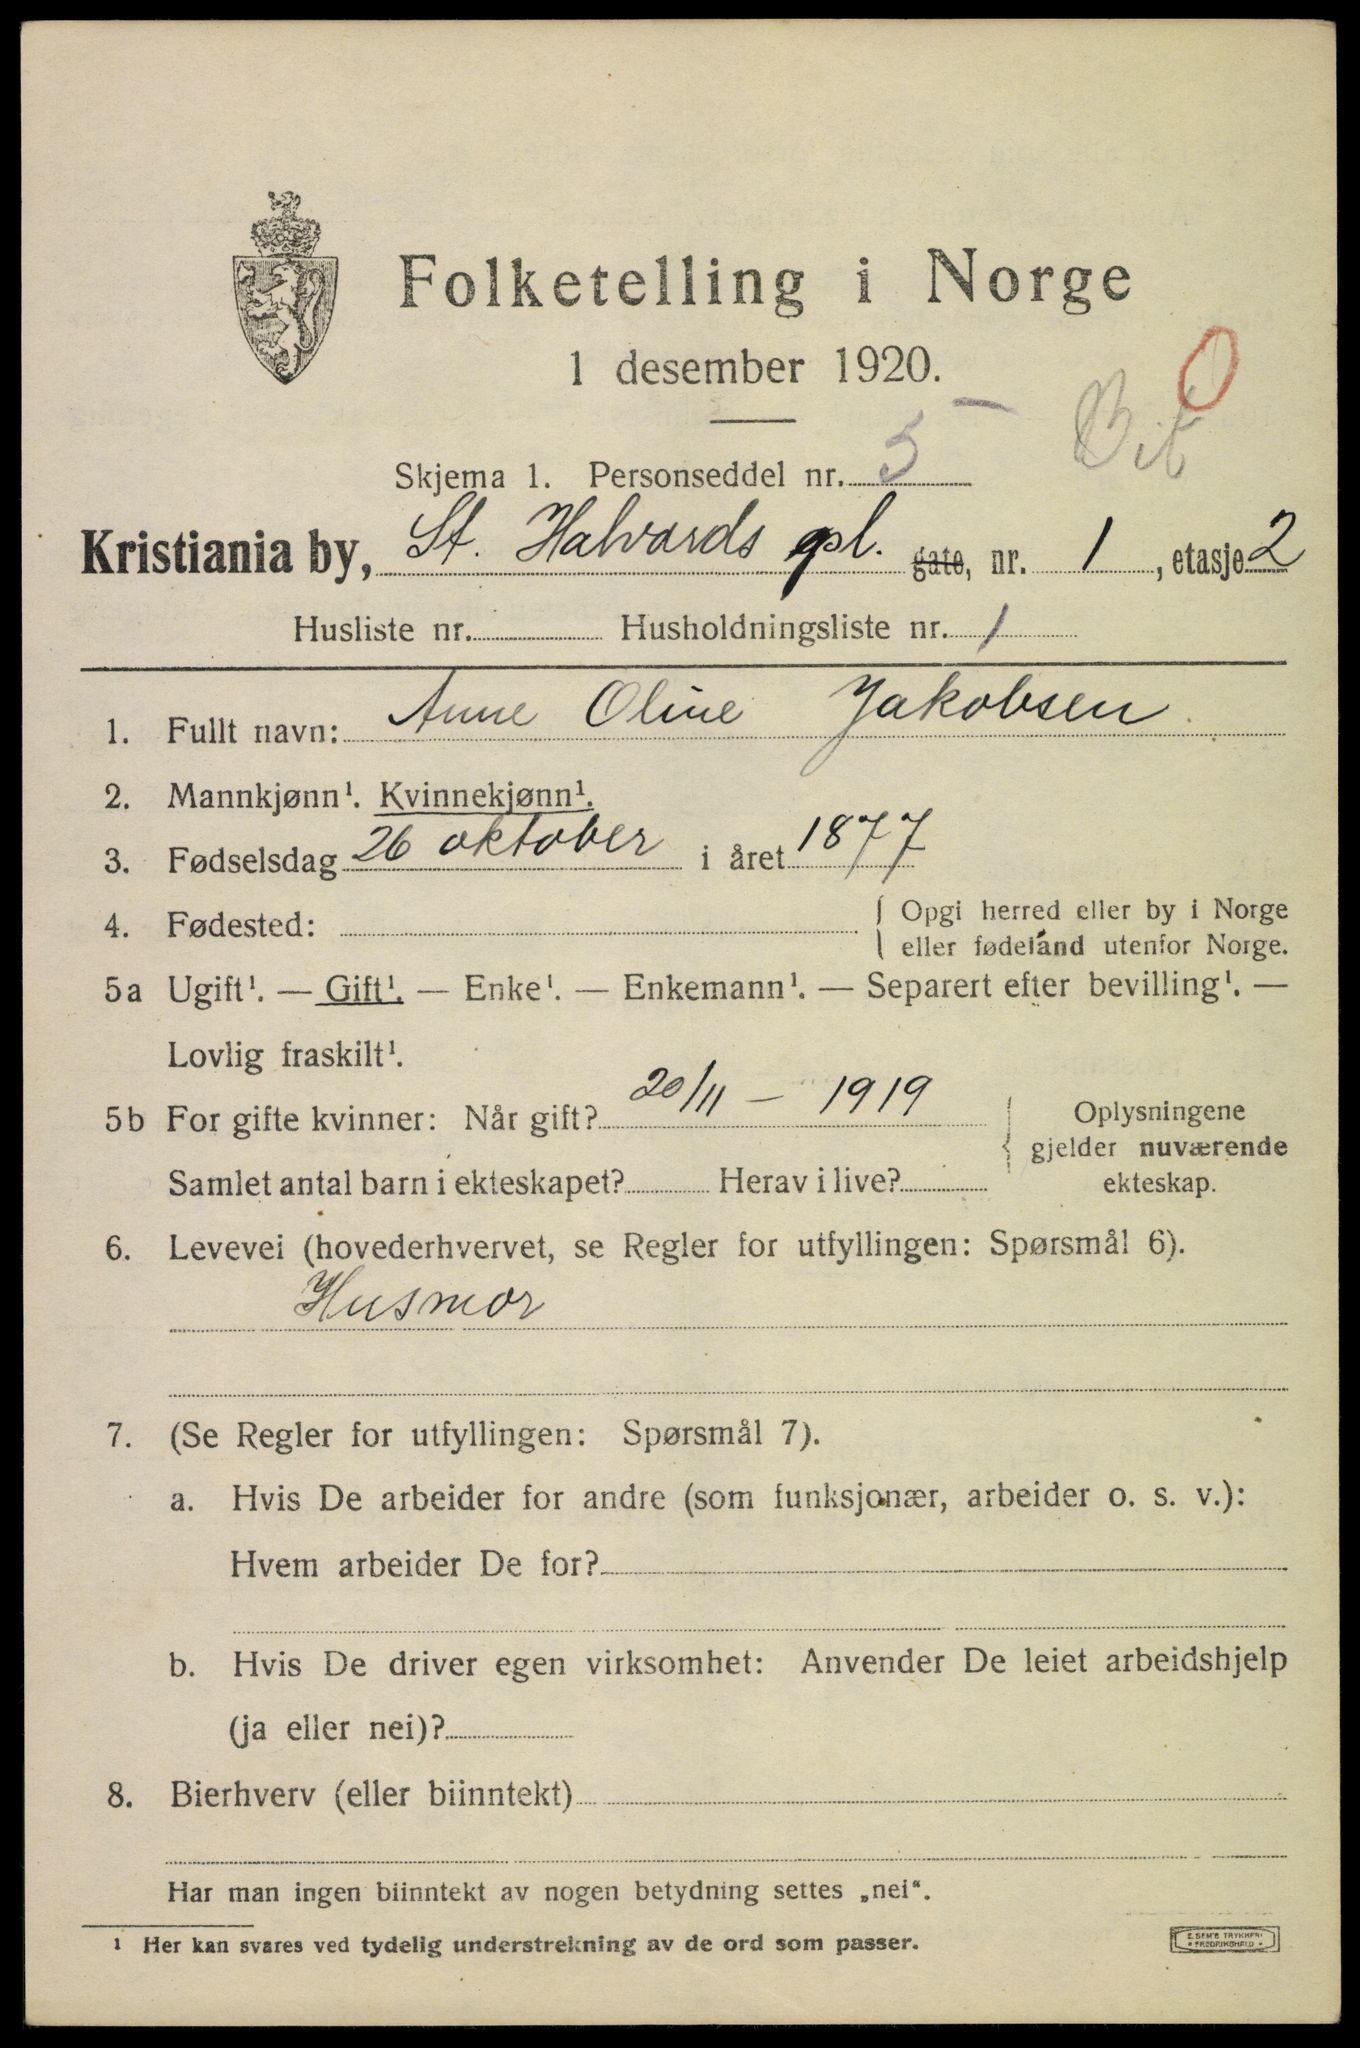 Folketelling i Norge
1 desember 1920.
Skjema 1. Personseddel nr. 5
Kristiania by, St. Halvards pl. gate, nr. 1, etasje 2
Husliste nr. Husholdningsliste nr. 1
1. Fullt navn: Anne Oline Jakobsen
2. Mannkjønn¹. Kvinnekjønn¹.
3. Fødselsdag 26 oktober i året 1877
4. Fødested: { Opgi herred eller by i Norge
eller fødeland utenfor Norge.
5a Ugift¹. — Gift¹. — Enke¹. — Enkemann¹. — Separert efter bevilling¹. —
Lovlig fraskilt¹.
5b For gifte kvinner: Når gift? 20/11 – 1919 { Oplysningene
gjelder nuværende
Samlet antal barn i ekteskapet? Herav i live? ekteskap.
6. Levevei (hovederhvervet, se Regler for utfyllingen: Spørsmål 6).
Husmor
7. (Se Regler for utfyllingen: Spørsmål 7).
a. Hvis De arbeider for andre (som funksjonær, arbeider o. s. v.):
Hvem arbeider De for?
b. Hvis De driver egen virksomhet: Anvender De leiet arbeidshjelp
(ja eller nei)?
8. Bierhverv (eller biinntekt)
Har man ingen biinntekt av nogen betydning settes „nei“.
¹ Her kan svares ved tydelig understrekning av de ord som passer.
E. SEM'S TRYKKERI
* FREDRIKSHALD *